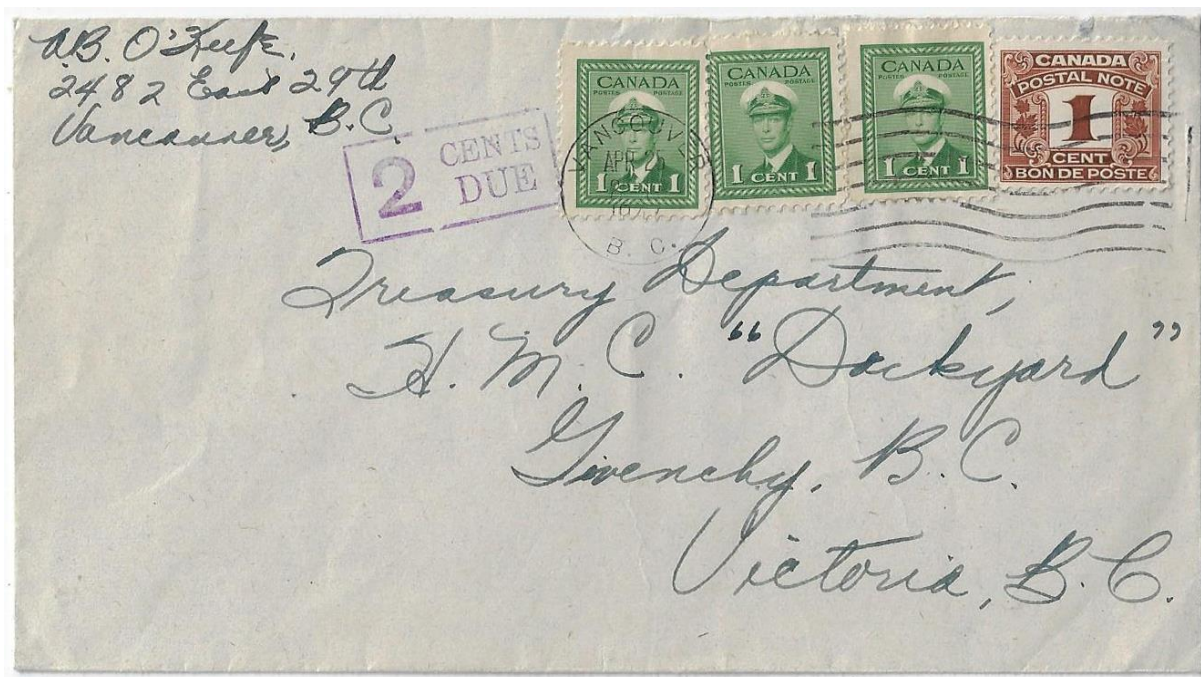 A.B. O'Keefe,
2482 East 29th
Vancouver, B.C.
2 CENTS DUE
CANADA
POSTES POSTAGE
1 CENT 1
CANADA
POSTES POSTAGE
1 CENT 1
CANADA
POSTES POSTAGE
1 CENT 1
CANADA
POSTAL NOTE
1
CENT
BON DE POSTE
VANCOUVER
APR
B. C.
Treasury Department,
H. M. C. "Dockyard"
Givenchy, B.C.
Victoria, B.C.